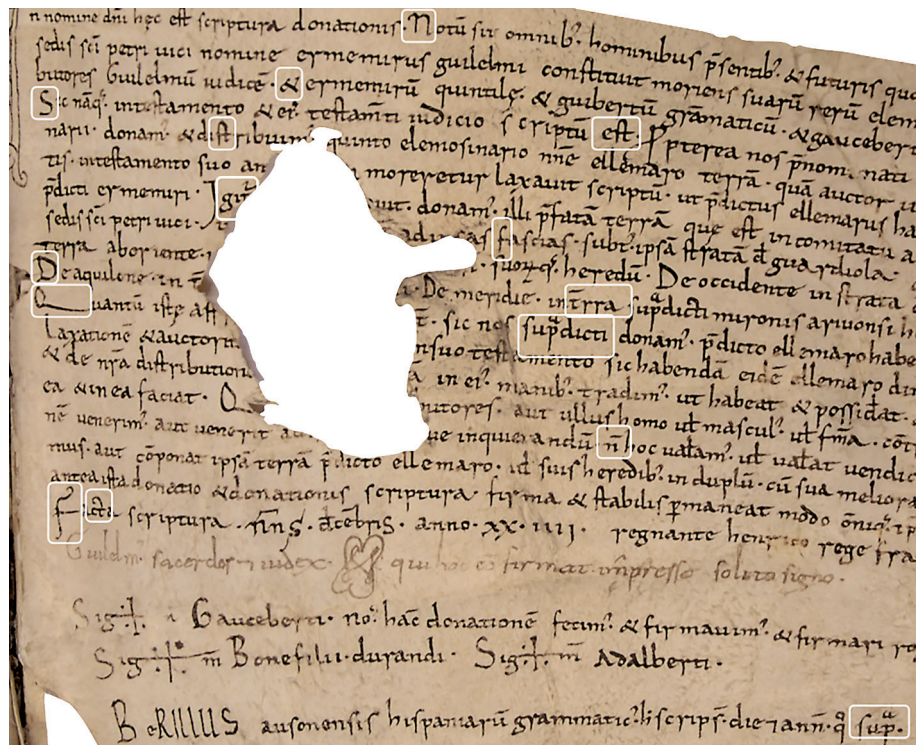 n nomine dñi hęc est scriptura donationis. Notũ sit omnib; hominibus p̃sentib; & futuris quo
sedis sc̃i petri uici nomine ermemirus guilelmi constituit moriens suarũ rerũ elem
butores Guilelmũ iudicẽ. & ermemirũ quintilę. & guibertũ grãmaticũ. & gaucebert
Sic nãq; intestamento & ei; testam̃ti iudicio scriptũ est. Propterea nos p̃nom. nati
narii. donam; & distribuim; quinto elemosinario nñe ellemaro terrã. quã auctor
tis. intestamento suo an moreretur laxauit scriptũ. ut p̃dictus ellemarus ha
p̃dicti ermemiri. Igit uit. donam; illi p̃fatã terrã que est incomitatu a
sedis sc̃i petri uici. fascias. subt; ipsã stratã d̃ guardiola
terra aboriente. suorq; heredũ. De occidente in strata
De aquilone. in t̃ . De meridiẽ. in t̃rra sup̃dicti mironis ariuonsi h
Quantũ iste aff t̃. sic nos sup̃dicti donam; p̃dicto ellemaro habe
laxationẽ & auctorit nsuo testamento sic habendã eidẽ ellemaro du
& de nr̃a distribution ã in ei; manib; tradim; ut habeat & possid̃at.
ea & in ea faciat. Q butores. aut ullus homo ut̃ mascul; ut̃ fm̃ia. cõt
nẽ venerim; aut venerit au ue inquietandũ. ñ hoc val̃am; ut̃ val̃at vendic
mus. aut cõponat ipsã terrã p̃dicto ellemaro. ut̃ suis heredib; in duplũ. cũ sua meliora
antea ista donatio & donationis scriptura firma & stabilis p̃maneat modo õniq;
Facta scriptura. ñns̃. d̃cẽbris. anno. xx. iiii. regnante henrico rege fra
Guilelm; sacerdos ⁊ iudex. qui hoc firmat. imp̃resso solito signo.
Sig+ Gauceberti. no; hãc donationẽ fecim; & firmauim; & firmari ro
Sig+m̃ Bonefilii. durandi. Sig+m̃ Adalberti.
BeRIllUS ausonensis hispaniarũ grammatic; h̃ scrips̃. die ⁊ ann̄. q̃ sup̃.